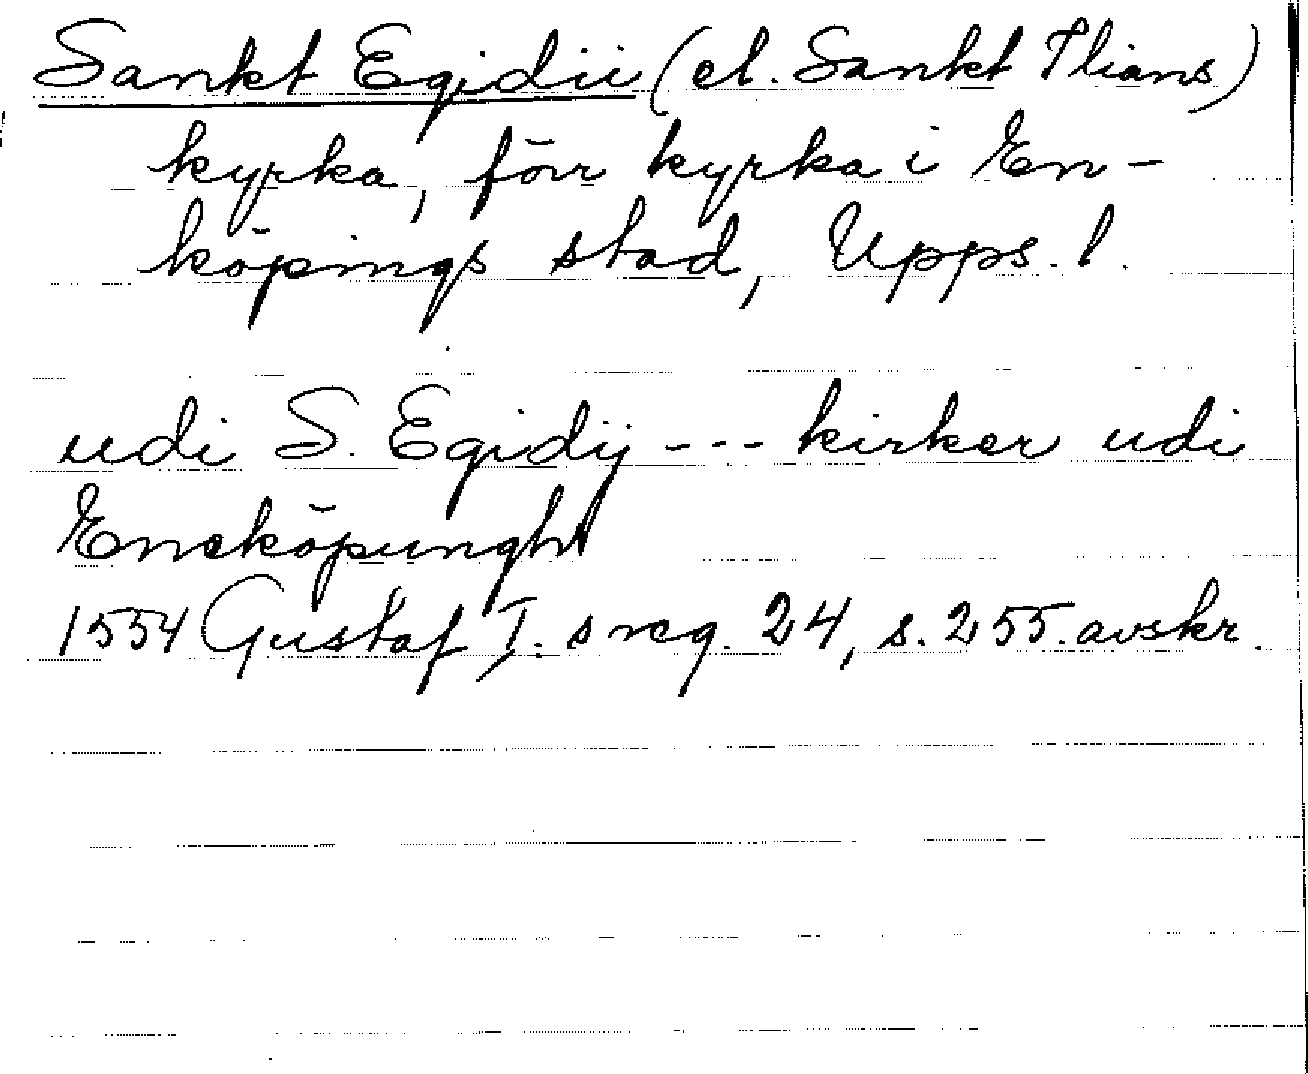 Sankt Egidii (el. Sankt Ilians)
kyrka, förr kyrka i En-
köpings stad, Upps. l.
udi S. Egidij --- kirker udi
Eneköpungh
1554 Gustaf I:s reg. 24, s. 255. avskr.